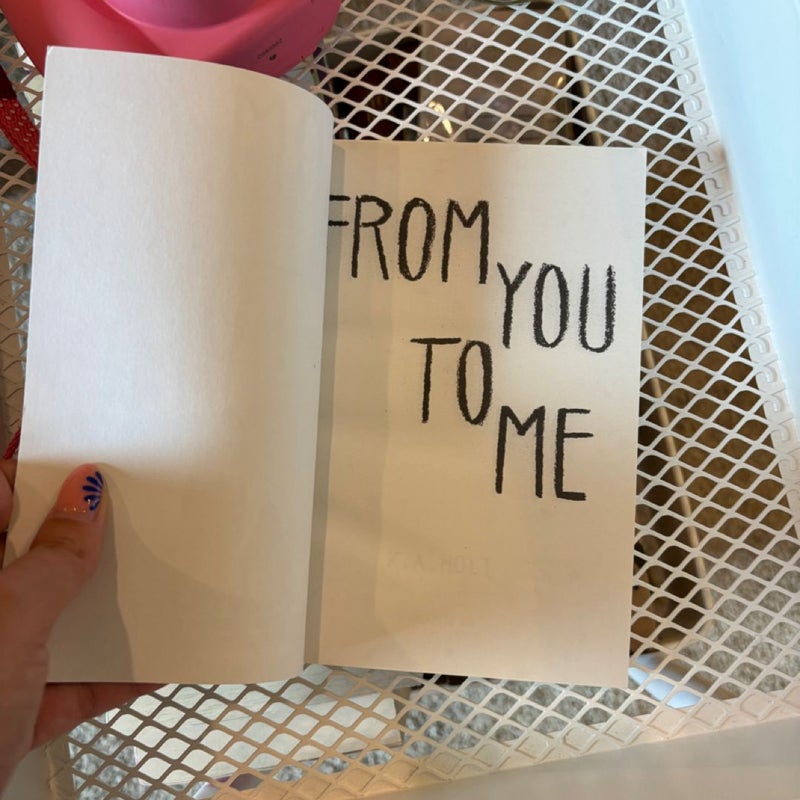 FROM
YOU
TO
ME
K.A. HOLT